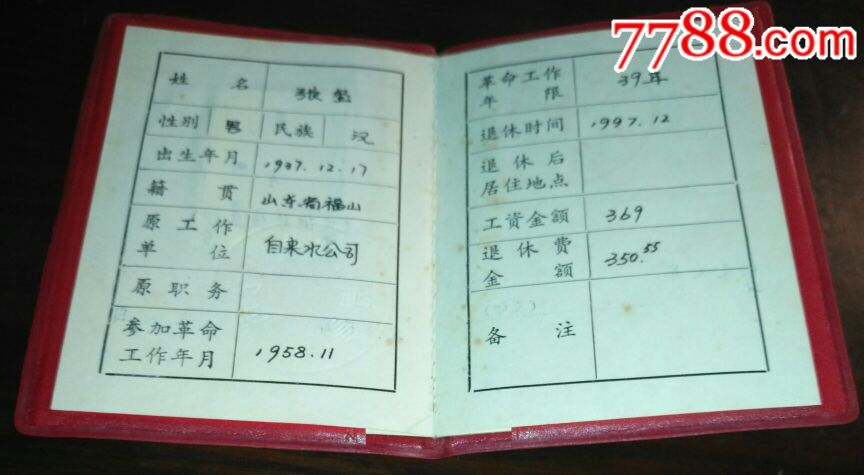 7788.com
姓 名 张
性别 男 民族 汉
出生年月 1937.12.17
籍 贯 山东省福山
原工作
单 位 自来水公司
原职务
参加革命
工作年月 1958.11
革命工作
年 限 39年
退休时间 1997.12
退休后
居住地点
工资金额 369
退休费
金 额 350.55
备 注